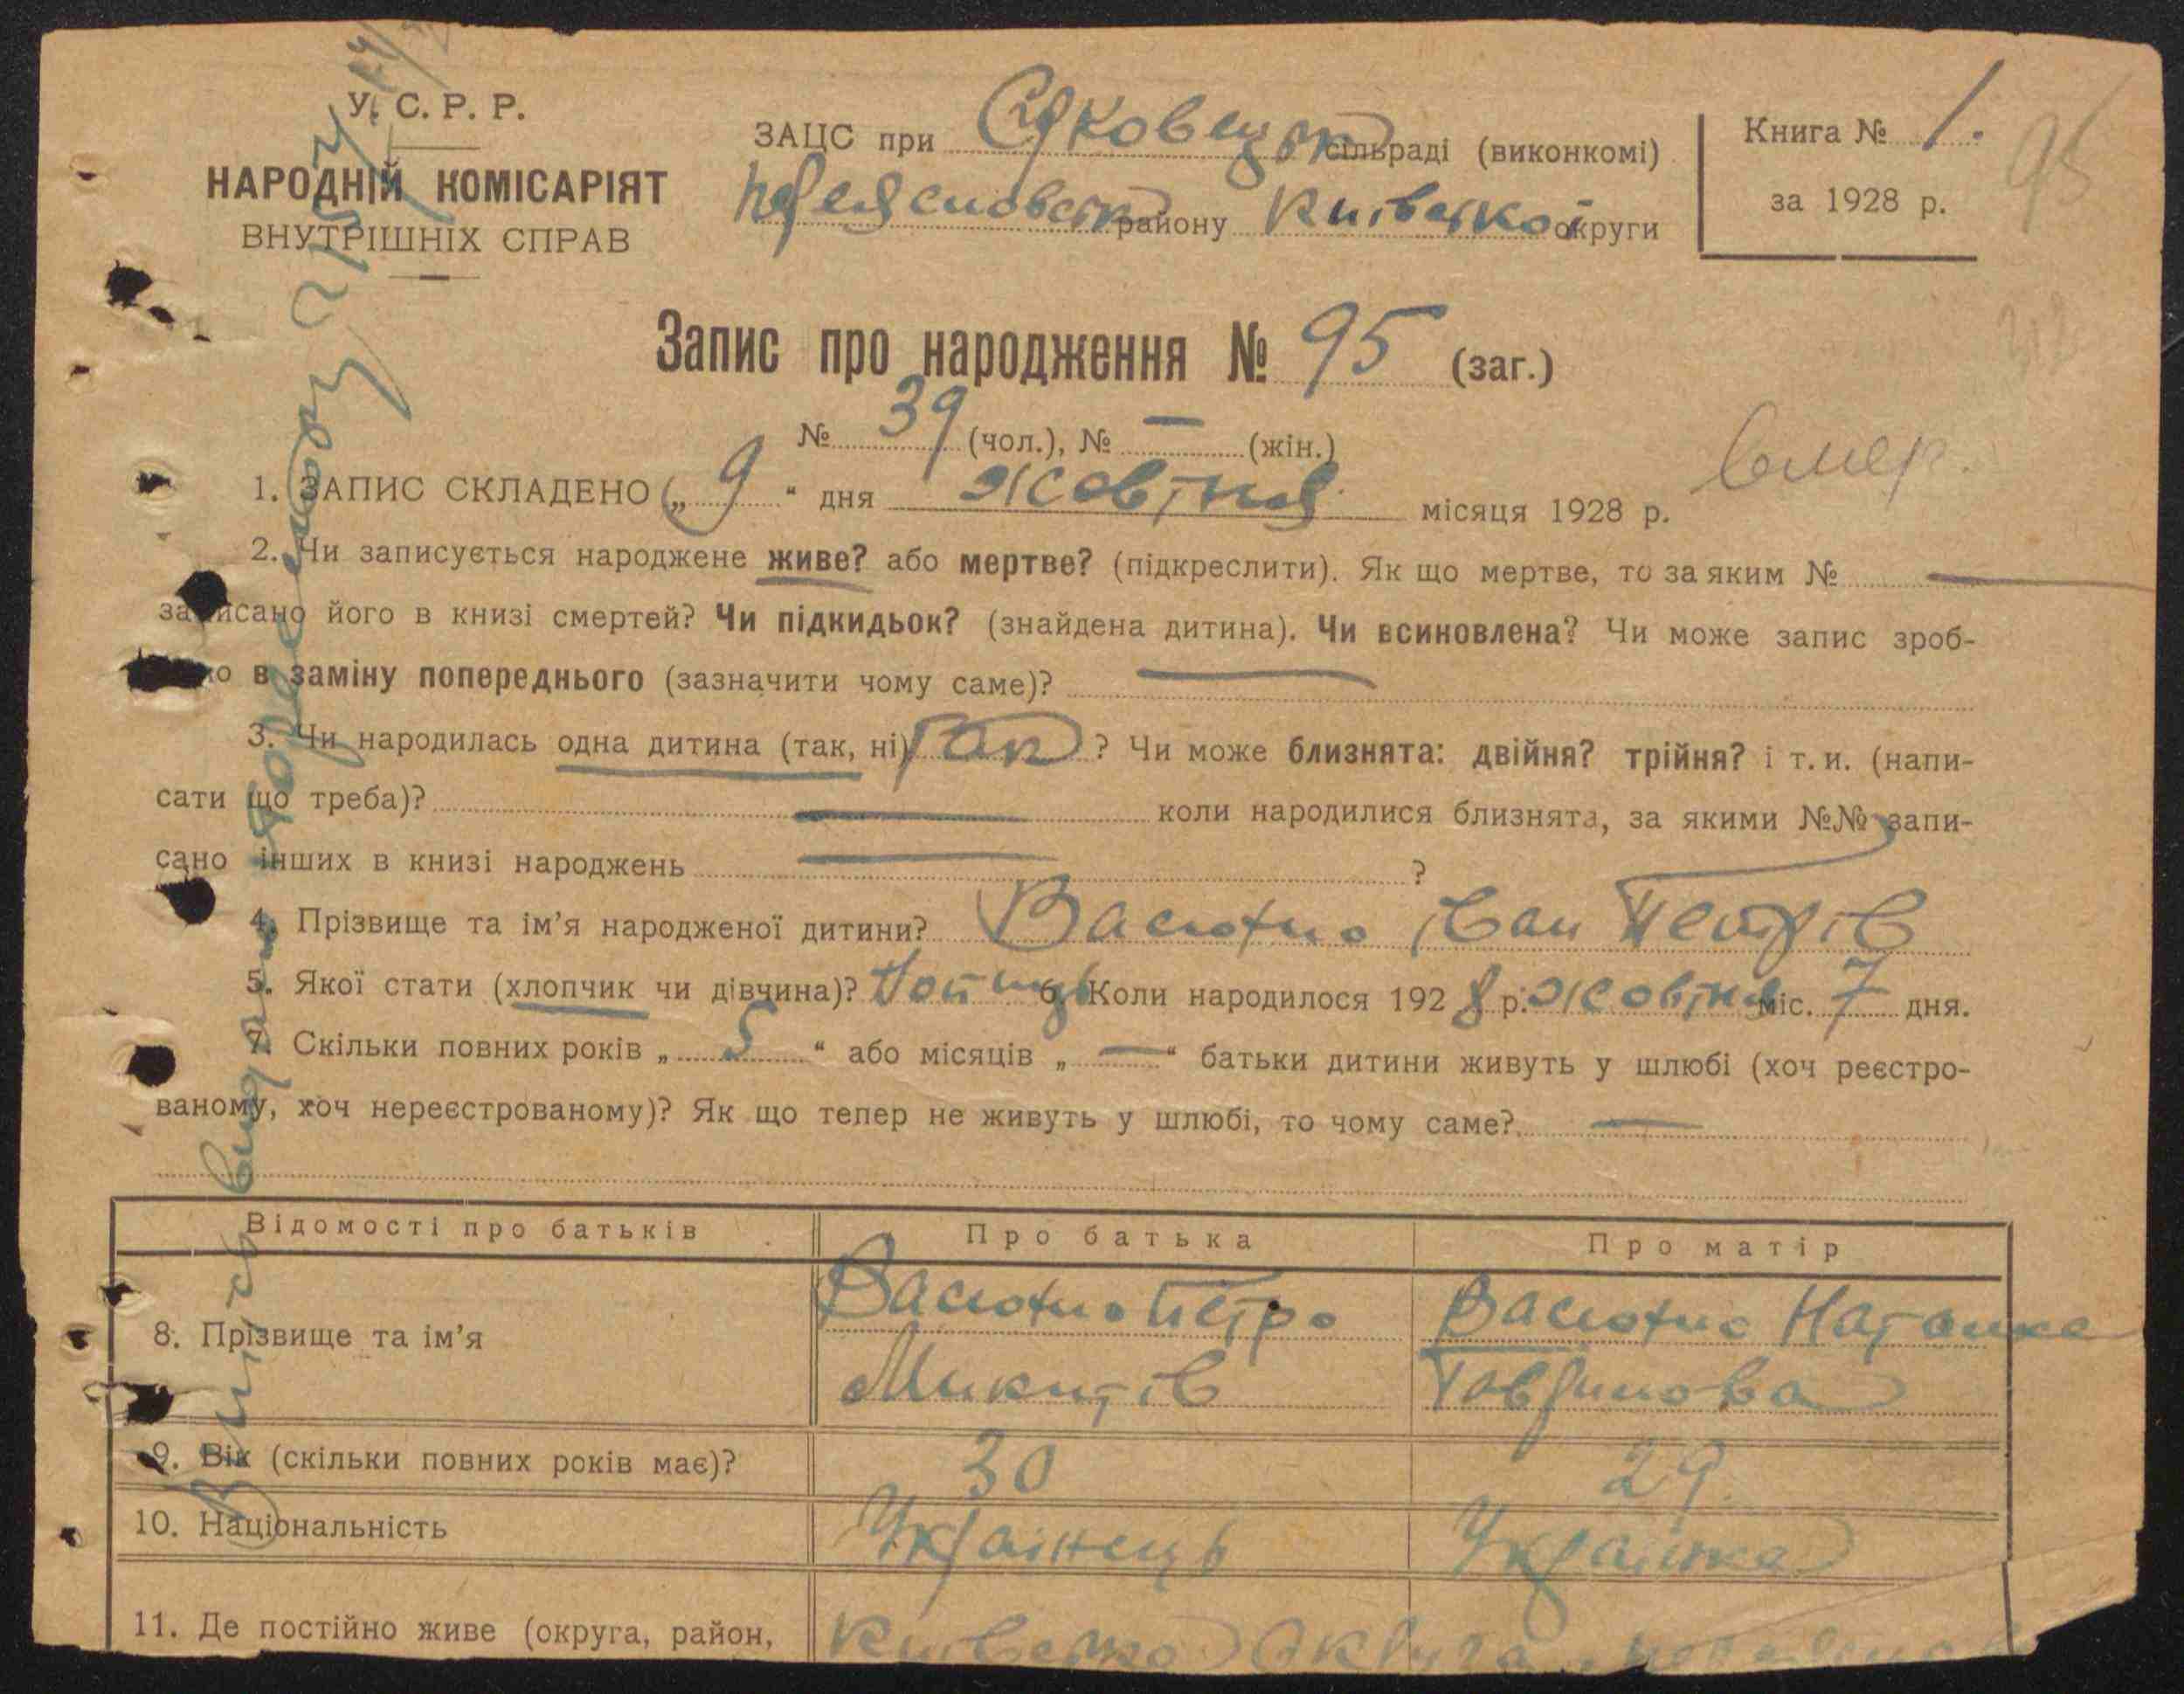 У. С. Р. Р.
НАРОДНІЙ КОМІСАРІЯТ
ВНУТРІШНІХ СПРАВ
ЗАЦС при сільраді (виконкомі)
району Київської округи
Книга № 1.
за 1928 р.
95
Запис про народження № 95 (заг.)
№ 39 (чол.), № — (жін.)
Вмер.
1. ЗАПИС СКЛАДЕНО „ 9 “ дня жовтня місяця 1928 р.
2. Чи записується народжене живе? або мертве? (підкреслити). Як що мертве, то за яким № —
записано його в книзі смертей? Чи підкидьок? (знайдена дитина). Чи всиновлена? Чи може запис зроб-
в заміну попереднього (зазначити чому саме)?
3. Чи народилась одна дитина (так, ні) Так ? Чи може близнята: двійня? трійня? і т. и. (напи-
сати що треба)? — коли народилися близнята, за якими №№ запи-
сано інших в книзі народжень — ?
4. Прізвище та ім’я народженої дитини? Васюхно Іван Петрів
5. Якої стати (хлопчик чи дівчина)? 6. Коли народилося 1928 р. жовтня міс. 7 дня.
7. Скільки повних років „ 5 “ або місяців „ — “ батьки дитини живуть у шлюбі (хоч реєстро-
ваному, хоч нереєстрованому)? Як що тепер не живуть у шлюбі, то чому саме? —
Відомості про батьків Про батька Про матір
8. Прізвище та ім’я Васюхно Петро Васюхно Наталка
Микитів Гаврилова
9. Вік (скільки повних років має)? 30 29.
10. Національність Українець Українка
11. Де постійно живе (округа, район, Київська Округа